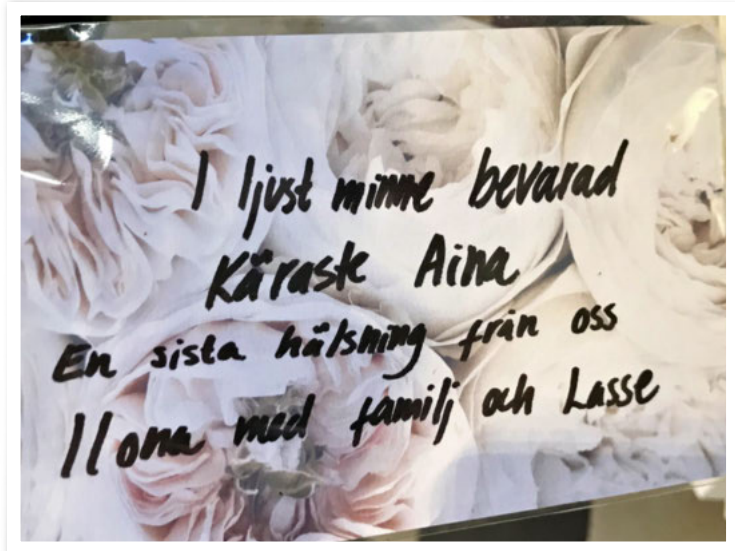 I ljust minne bevarad
Käraste Aina
En sista hälsning från oss
Ilona med familj och Lasse